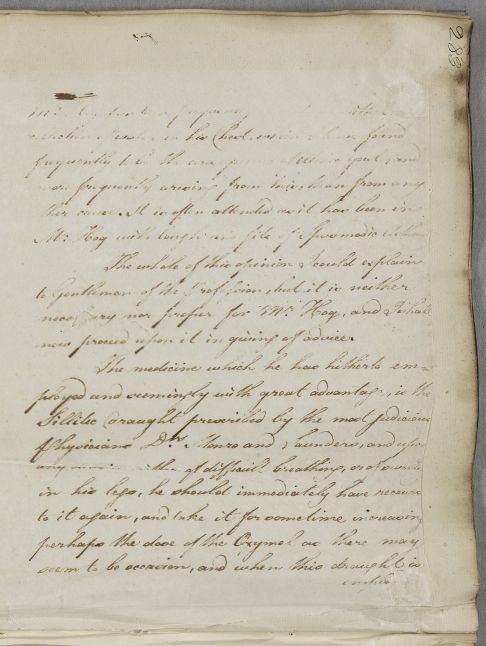 283
in his Chest, which I have found
frequently to be the
more frequently arising from this, than from any
other cause. It is often attended as it has been in
Mr. Hog with Cough and fits of Spasmodic
The whole of this opinion I could explain
to Gentlemen of the Profession, but it is neither
necessary nor proper for Mr. Hog, and I shall
now proceed upon it in giving of advice.
The medicine which he has hitherto em-
ployed and seemingly with great advantage, is the
Sillitic draught prescribed by the most judicious
Physicians Drs. Monro and Saunders, and upon
any of difficult breathing, or of swelling
in his legs, he should immediately have recourse
to it again, and take it for sometime increasing
perhaps the dose of the Oxymel as there may
seem to be occasion, and when this draught is